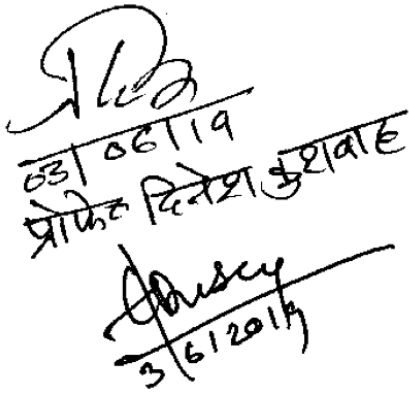 03/06/19
प्रोफेट दिनेश कुशवाह
3/6/2019